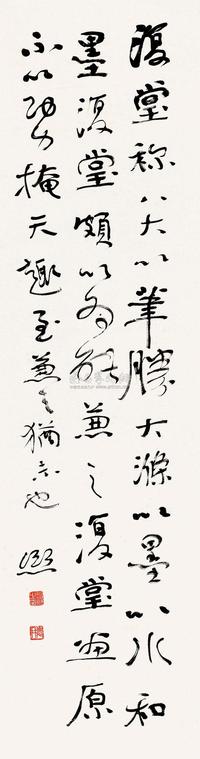 復堂称八大以筆勝大滌以墨以水和
墨復堂頗以為能兼之復堂畫原
不以功力掩天趣至兼之猶未也 熙